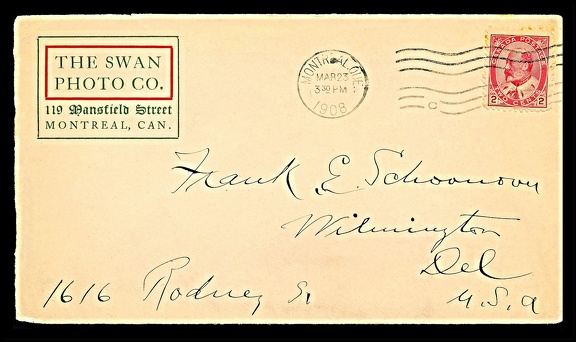 THE SWAN
PHOTO CO.
119 Mansfield Street
MONTREAL, CAN.
MONTREAL, QUE.
MAR 23
3 30 PM
1908
C
CANADA POSTAGE
2 2
TWO CENTS
Frank E. Schoonover
Wilmington
Del
1616 Rodney St
U.S.A